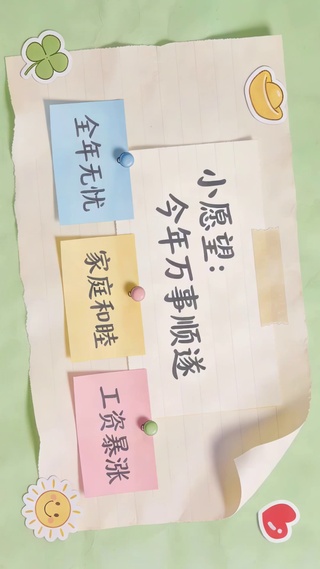 小愿望：
今年万事顺遂
全年无忧
家庭和睦
工资暴涨